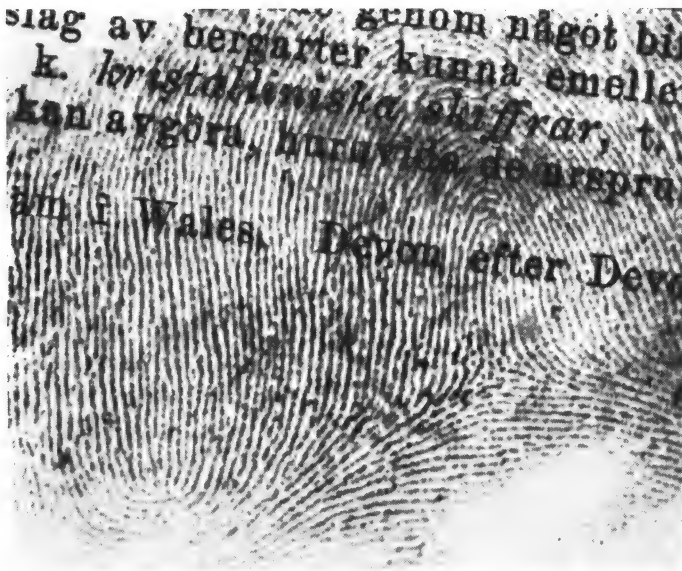 slag av bergarter kunna emellet
genom något bil
k. kristalliniska skiffrar, t.
kan avgöra, huruvida de urspru
äm i Wales. Devon efter Devo